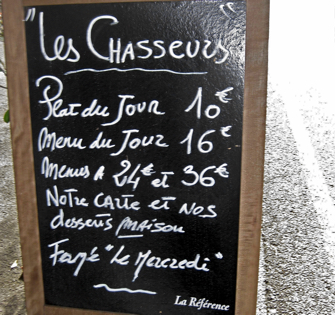 "Les Chasseurs"
Plat du Jour 10€
Menu du Jour 16€
Menus à 24€ et 36€
Notre carte et nos
desserts maison
Fermé "Le Mercredi"
La Référence